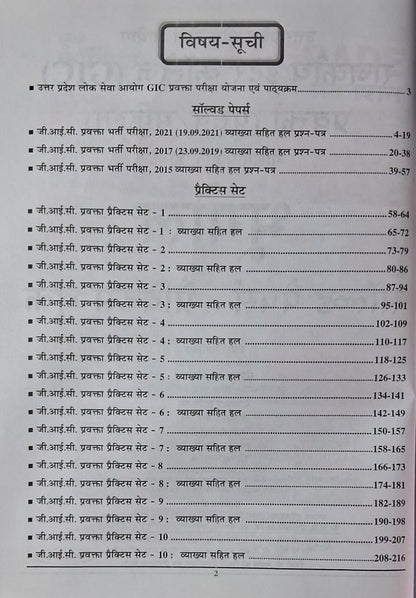 विषय-सूची
■ उत्तर प्रदेश लोक सेवा आयोग GIC प्रवक्ता परीक्षा योजना एवं पाठ्यक्रम ........ 3
सॉल्वड पेपर्स
■ जी.आई.सी. प्रवक्ता भर्ती परीक्षा, 2021 (19.09.2021) व्याख्या सहित हल प्रश्न-पत्र ........ 4-19
■ जी.आई.सी. प्रवक्ता भर्ती परीक्षा, 2017 (23.09.2019) व्याख्या सहित हल प्रश्न-पत्र ........ 20-38
■ जी.आई.सी. प्रवक्ता भर्ती परीक्षा, 2015 व्याख्या सहित हल प्रश्न-पत्र ........ 39-57
प्रैक्टिस सेट
■ जी.आई.सी. प्रवक्ता प्रैक्टिस सेट - 1 ........ 58-64
■ जी.आई.सी. प्रवक्ता प्रैक्टिस सेट - 1 : व्याख्या सहित हल ........ 65-72
■ जी.आई.सी. प्रवक्ता प्रैक्टिस सेट - 2 ........ 73-79
■ जी.आई.सी. प्रवक्ता प्रैक्टिस सेट - 2 : व्याख्या सहित हल ........ 80-86
■ जी.आई.सी. प्रवक्ता प्रैक्टिस सेट - 3 ........ 87-94
■ जी.आई.सी. प्रवक्ता प्रैक्टिस सेट - 3 : व्याख्या सहित हल ........ 95-101
■ जी.आई.सी. प्रवक्ता प्रैक्टिस सेट - 4 ........ 102-109
■ जी.आई.सी. प्रवक्ता प्रैक्टिस सेट - 4 : व्याख्या सहित हल ........ 110-117
■ जी.आई.सी. प्रवक्ता प्रैक्टिस सेट - 5 ........ 118-125
■ जी.आई.सी. प्रवक्ता प्रैक्टिस सेट - 5 : व्याख्या सहित हल ........ 126-133
■ जी.आई.सी. प्रवक्ता प्रैक्टिस सेट - 6 ........ 134-141
■ जी.आई.सी. प्रवक्ता प्रैक्टिस सेट - 6 : व्याख्या सहित हल ........ 142-149
■ जी.आई.सी. प्रवक्ता प्रैक्टिस सेट - 7 ........ 150-157
■ जी.आई.सी. प्रवक्ता प्रैक्टिस सेट - 7 : व्याख्या सहित हल ........ 158-165
■ जी.आई.सी. प्रवक्ता प्रैक्टिस सेट - 8 ........ 166-173
■ जी.आई.सी. प्रवक्ता प्रैक्टिस सेट - 8 : व्याख्या सहित हल ........ 174-181
■ जी.आई.सी. प्रवक्ता प्रैक्टिस सेट - 9 ........ 182-189
■ जी.आई.सी. प्रवक्ता प्रैक्टिस सेट - 9 : व्याख्या सहित हल ........ 190-198
■ जी.आई.सी. प्रवक्ता प्रैक्टिस सेट - 10 ........ 199-207
■ जी.आई.सी. प्रवक्ता प्रैक्टिस सेट - 10 : व्याख्या सहित हल ........ 208-216
2